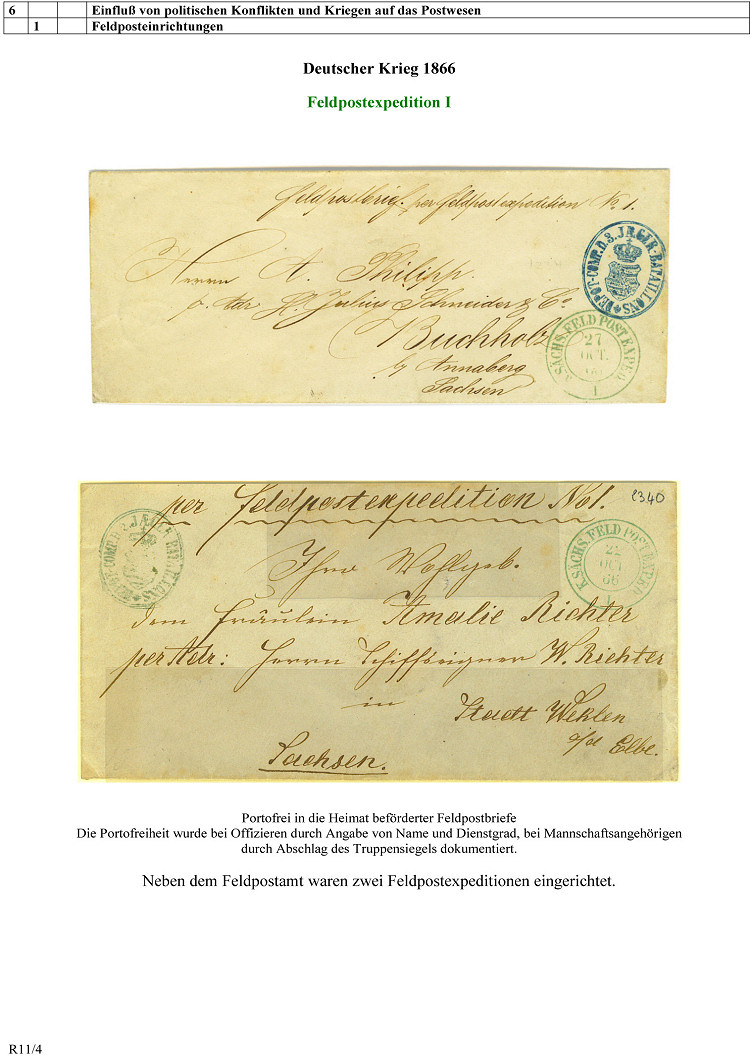 6 Einfluß von politischen Konflikten und Kriegen auf das Postwesen
1 Feldposteinrichtungen
Deutscher Krieg 1866
Feldpostexpedition I
Feldpostbrief. per Feldpostexpedition No. 1.
Herrn A. Philipp.
DEPOT-COMP. D. 3. JÆGER-BATAILLONS
p. Adr H. Julius Schneider & Co.
Buchholz
b/ Annaberg
Sachsen
K. SÄCHS. FELD POST EXPED.
27
OCT.
66
I
per Feldpostexpedition No 1.
2340
DEPOT-COMP. D. 2. JÆGER BATAILLONS
K. SÄCHS. FELD POST EXPED.
22
OCT
66
I
Ihro Wohlgeb.
dem Fräulein Amalie Richter
per Adr: Herrn Schiffseigner W. Richter
in
Stadt Wehlen
a/d Elbe.
Sachsen.
Portofrei in die Heimat beförderter Feldpostbriefe
Die Portofreiheit wurde bei Offizieren durch Angabe von Name und Dienstgrad, bei Mannschaftsangehörigen
durch Abschlag des Truppensiegels dokumentiert.
Neben dem Feldpostamt waren zwei Feldpostexpeditionen eingerichtet.
R11/4